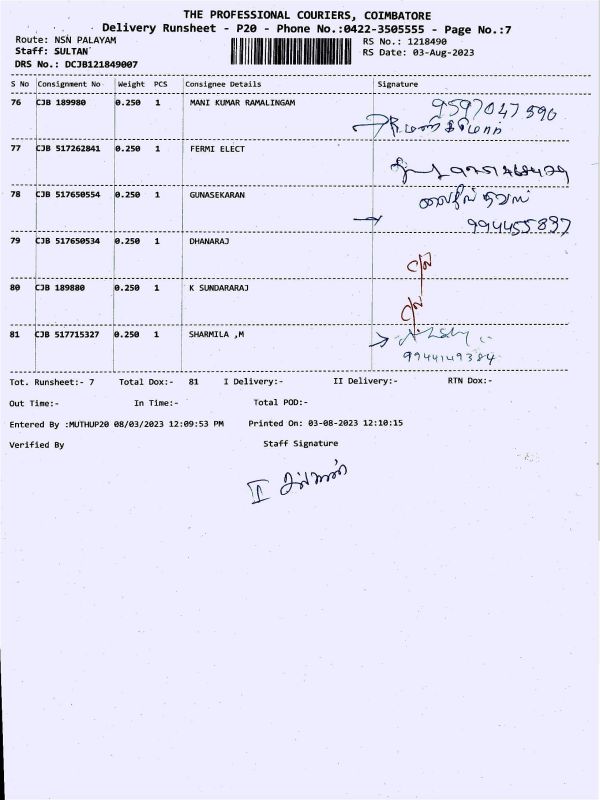 THE PROFESSIONAL COURIERS, COIMBATORE
Delivery Runsheet - P20 - Phone No.:0422-3505555 - Page No.:7
Route: NSN PALAYAM RS No.: 1218490
Staff: SULTAN RS Date: 03-Aug-2023
DRS No.: DCJB121849007
S No Consignment No Weight PCS Consignee Details Signature
76 CJB 189980 0.250 1 MANI KUMAR RAMALINGAM 9597047590
77 CJB 517262841 0.250 1 FERMI ELECT
78 CJB 517650554 0.250 1 GUNASEKARAN
994455837
79 CJB 517650534 0.250 1 DHANARAJ
80 CJB 189880 0.250 1 K SUNDARARAJ
81 CJB 517715327 0.250 1 SHARMILA ,M
9944149384
Tot. Runsheet:- 7 Total Dox:- 81 I Delivery:- II Delivery:- RTN Dox:-
Out Time:- In Time:- Total POD:-
Entered By :MUTHUP20 08/03/2023 12:09:53 PM Printed On: 03-08-2023 12:10:15
Verified By Staff Signature
II